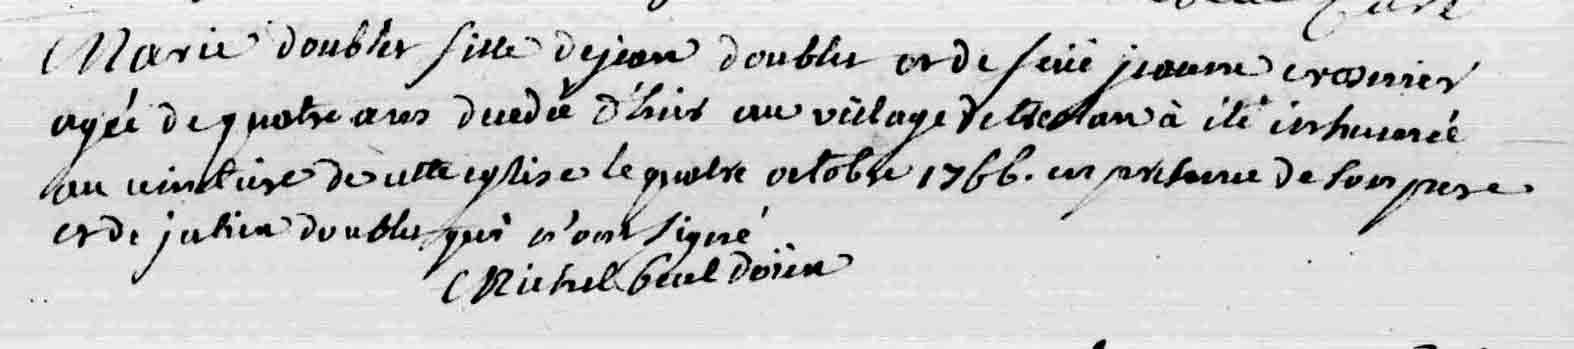 Marie doublet fille de jean doublet et de feüe jeanne crosnier
agée de quatre ans decedée d'hier au village de a été inhumée
au cimetiere de cette eglise le quatre octobre 1766. en presence de son pere
et de julien doublet qui n'ont signé
Michel doïen